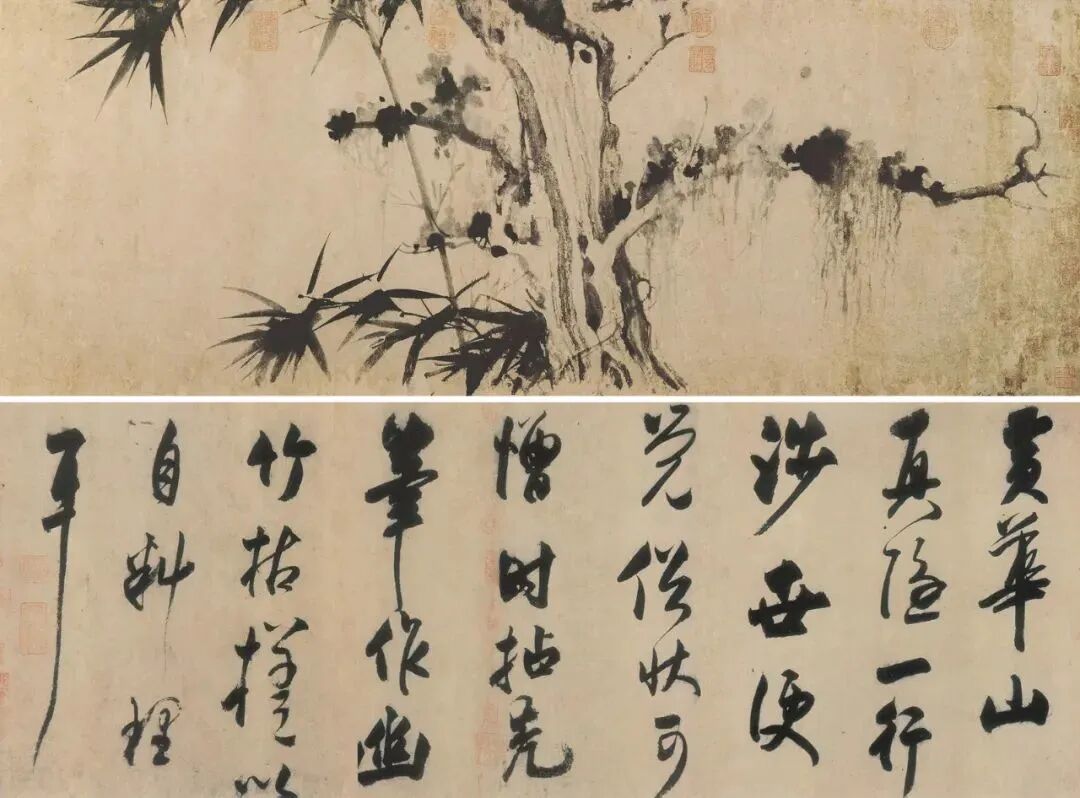 黃華山
真隱一行
涉世便
覺俗狀可
憎時拈禿
筆作幽
竹枯槎以
自料理
耳